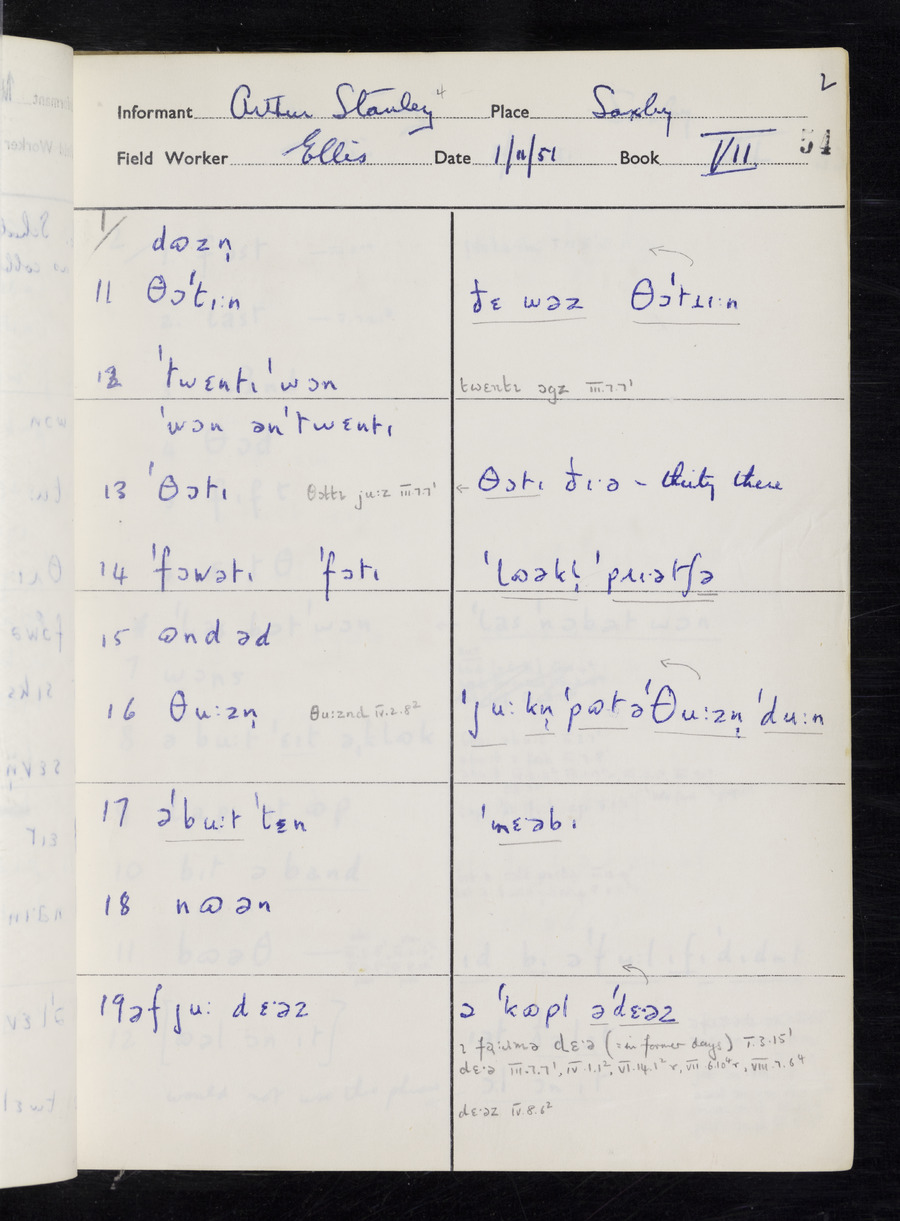 2
Informant Arthur Stanley 4 Place Saxby
Field Worker Ellis Date 1/11/51 Book VII 54
1/ dɷzn̩
11 θɔˈtɪːn ðɛ wəz θɔˈtɪːn
12 ˈtwɛntɪˈwɔn twɛntɪ əgz III.7.7¹
ˈwɔn ənˈtwɛntɪ
13 ˈθɔtɪ θɔttɪ juːz III.7.7¹ ← θɔtɪ ðɪə - thirty there
14 ˈfɔwətɪ ˈfɔtɪ ˈlɷəkl̩ ˈprɪːətʃə
15 ɷndəd
16 θuːzn̩ θuːznd IV.2.8² ˈjuː kn̩ ˈpɷt əˈθuːzn̩ ˈduːn
17 əˈbuːt ˈtɛn ˈmɛəbɪ
18 nɷən
19 əf juː dɛəz ə ˈkɷpl əˈdɛːəz
ɪ fɑːmə dɛːə (= in former days) I.3.15¹
dɛːə III.7.7¹, IV.1.1², VI.14.1² r, VII.6.10⁴ r, VIII.7.6⁴
dɛːəz IV.8.6²